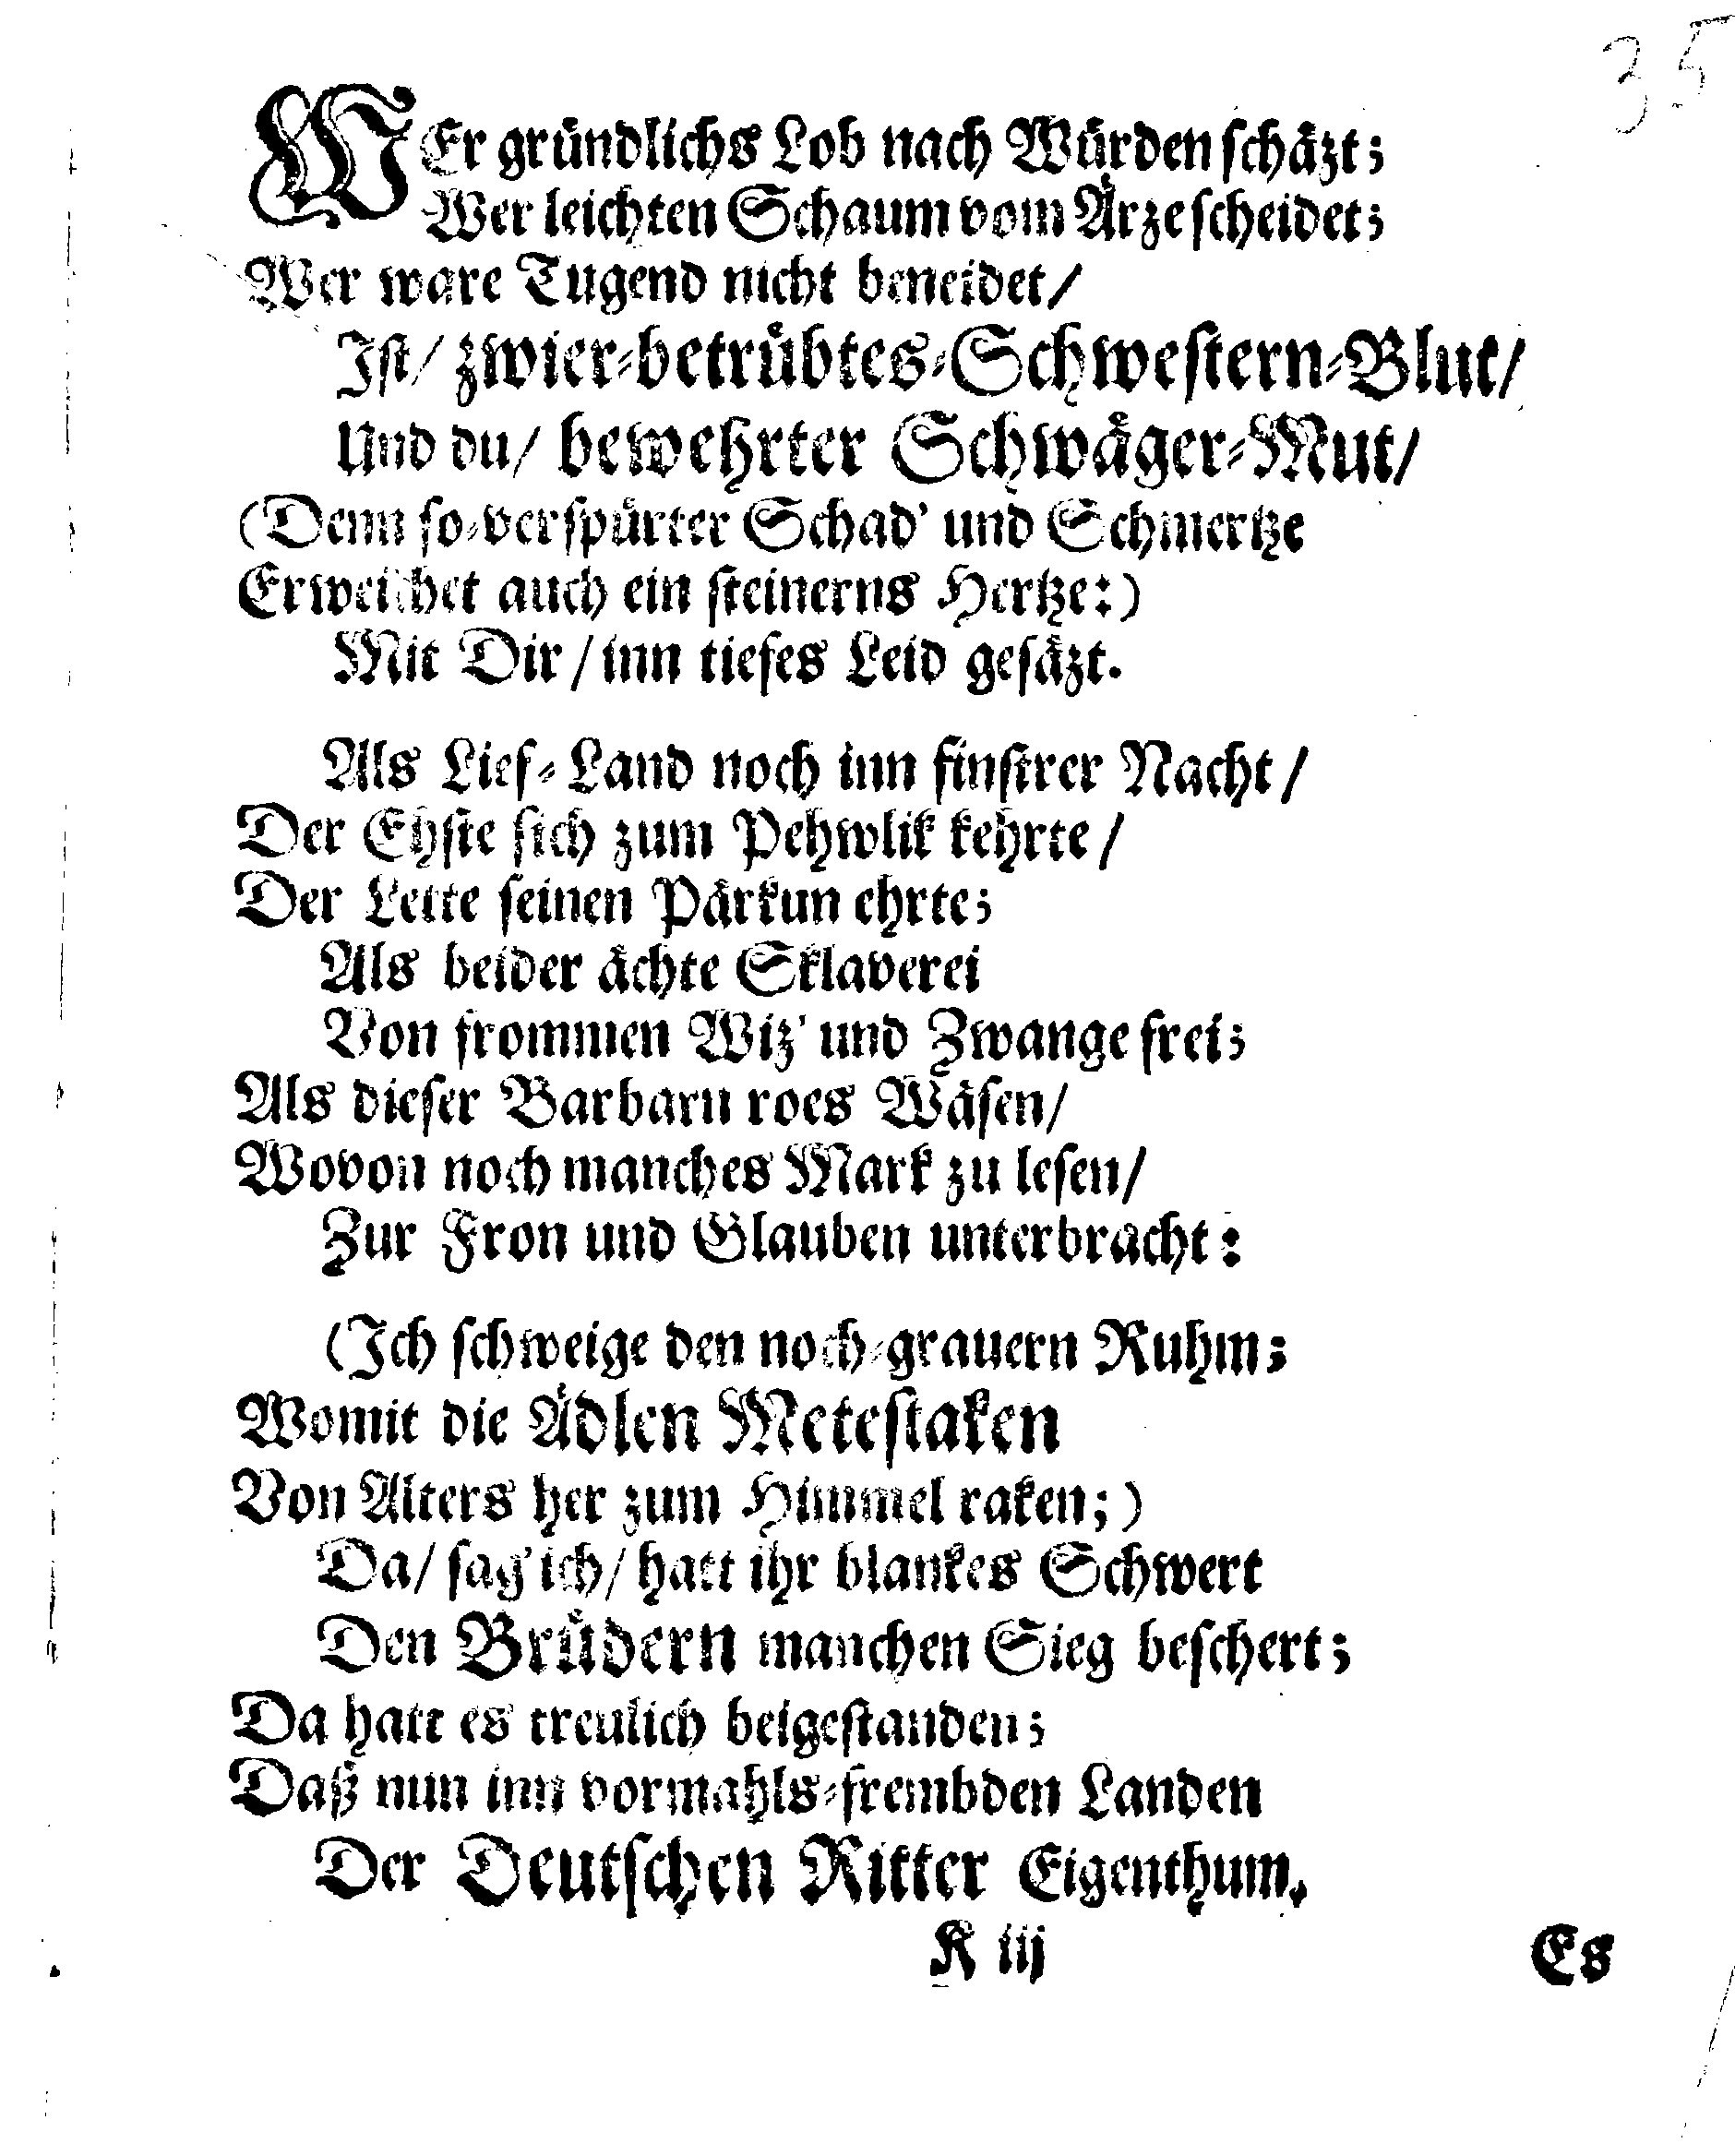 35
WEr gründlichs Lob nach Würden schäzt;
Wer leichten Schaum vom Ärze scheidet;
Wer ware Tugend nicht beneidet/
Ist/ zwier-betrübtes-Schwestern-Blut/
Und du/ bewehrter Schwäger-Mut/
(Denn so-verspürter Schad' und Schmertze
Erweichet auch ein steinerns Hertze:)
Mit Dir/ inn tiefes Leid gesäzt.
Als Lief-Land noch inn finstrer Nacht/
Der Ehste sich zum Pehwlik kehrte/
Der Lette seinen Pärkun ehrte;
Als beider ächte Sklaverei
Von frommen Wiz' und Zwange frei;
Als dieser Barbarn roes Wäsen/
Wovon noch manches Mark zu lesen/
Zur Fron und Glauben unterbracht:
(Ich schweige den noch-grauern Ruhm;
Womit die Ädlen Metestaken
Von Alters her zum Himmel raken;)
Da/ sag' ich/ hatt ihr blankes Schwert
Den Brüdern manchen Sieg beschert;
Da hatt es treulich beigestanden;
Daß nun inn vormahls-frembden Landen
Der Deutschen Ritter Eigenthum.
K iij
Es